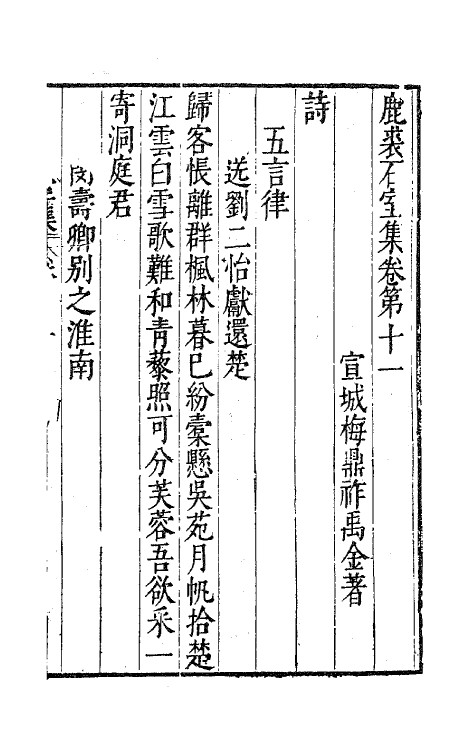 鹿裘石室集卷第十一
宣城梅鼎祚禹金著
詩
五言律
送劉二怡獻還楚
歸客悵離群楓林暮已紛橐懸吳苑月帆拾楚
江雲白雪歌難和青藜照可分芙蓉吾欲采一
寄洞庭君
閔壽卿別之淮南